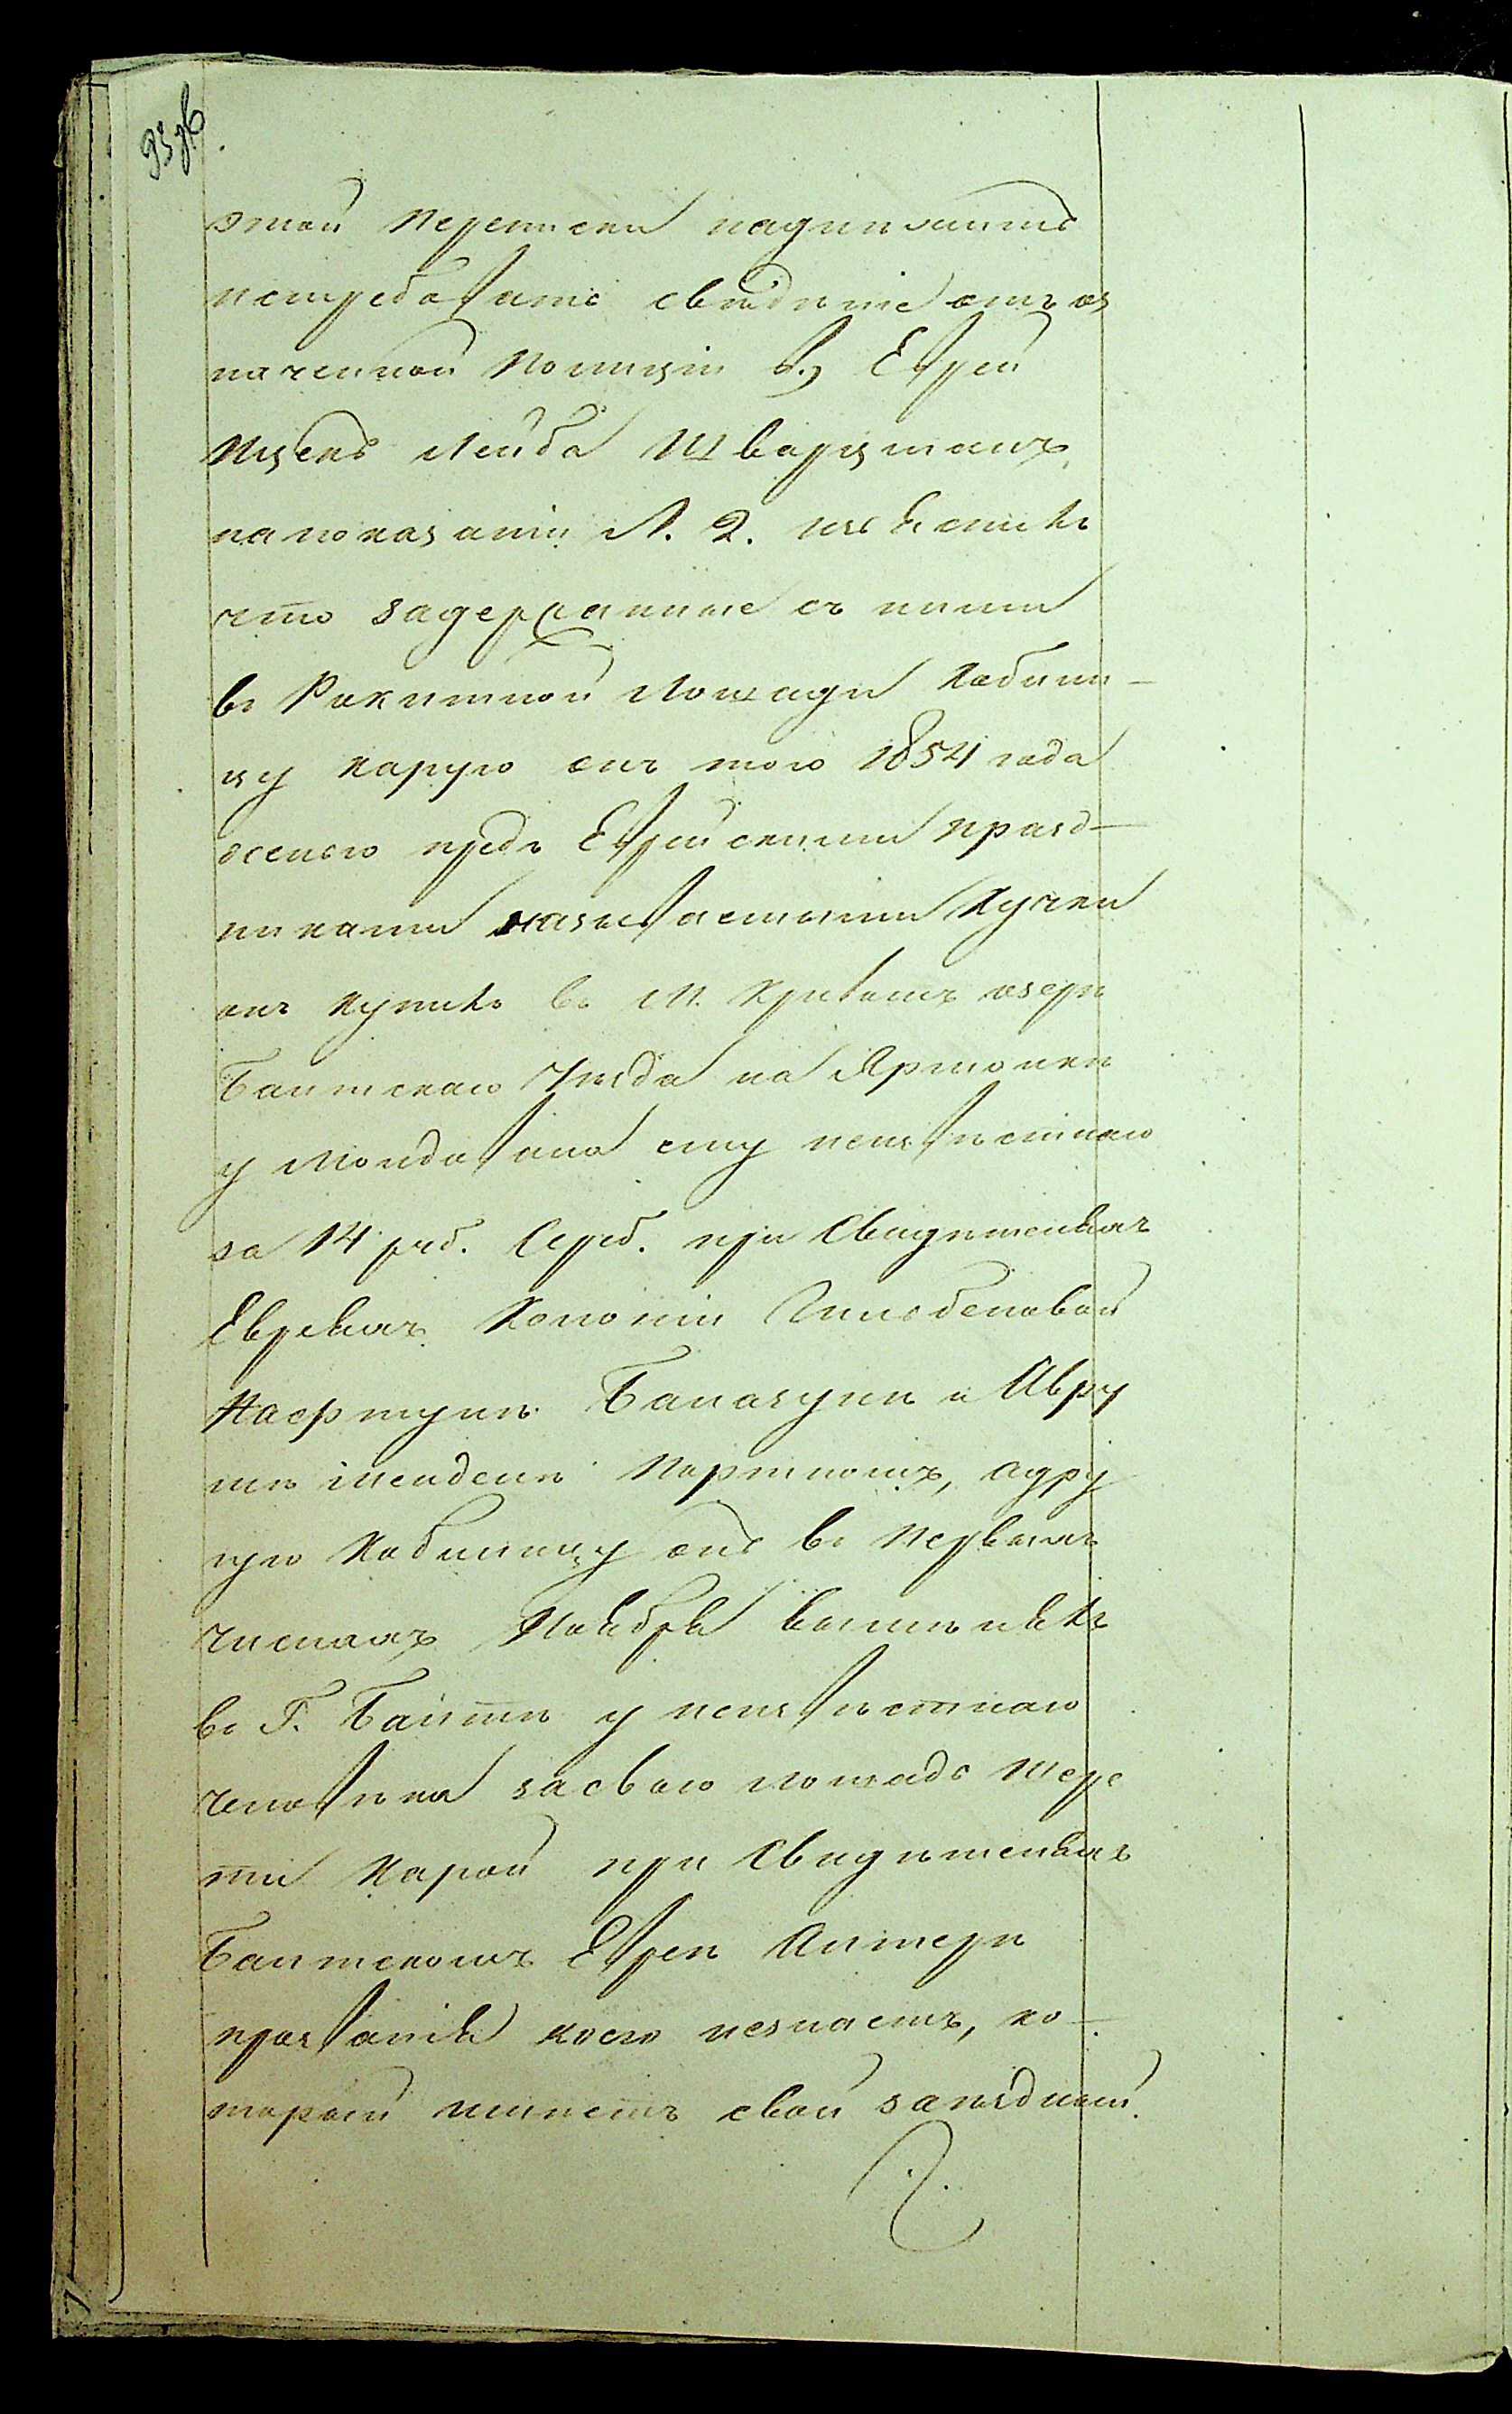 93 об.
этой переписки надлежитъ
истребовать свѣдѣніе отъ оз
наченной Полиціи б., Еврей
Ицекъ Лейба Шварцманъ
на показаніи Л. 2. изъяснилъ
что задержанные съ ними
въ Ракитной лошади кобыли-
цу карую онъ того 1854 года
осенью предъ Еврейскими празд-
никами называемыми Кучки
онъ купилъ въ М. Кривомъ озерѣ
Балтскаго Уѣзда на Ярмонкѣ
у Молдавана ему неизвѣстнаго
за 14 руб. Сереб. при Свидѣтеляхъ
Евреяхъ Колоніи Гильбеновой
Насртулѣ Балагулѣ и Авру
мѣ Менделѣ Портномъ, а дру
гую Кобылицу онъ въ первыхъ
числахъ Ноября вымѣнялъ
въ Г. Балтѣ у неизвѣстнаго
человѣка за свою лошадь Шерс
ти Карой при Свидѣтеляхъ
Балтскомъ Евреѣ Алтерѣ
прозванія коего незнаетъ, ко-
торой имѣетъ свой заѣздный